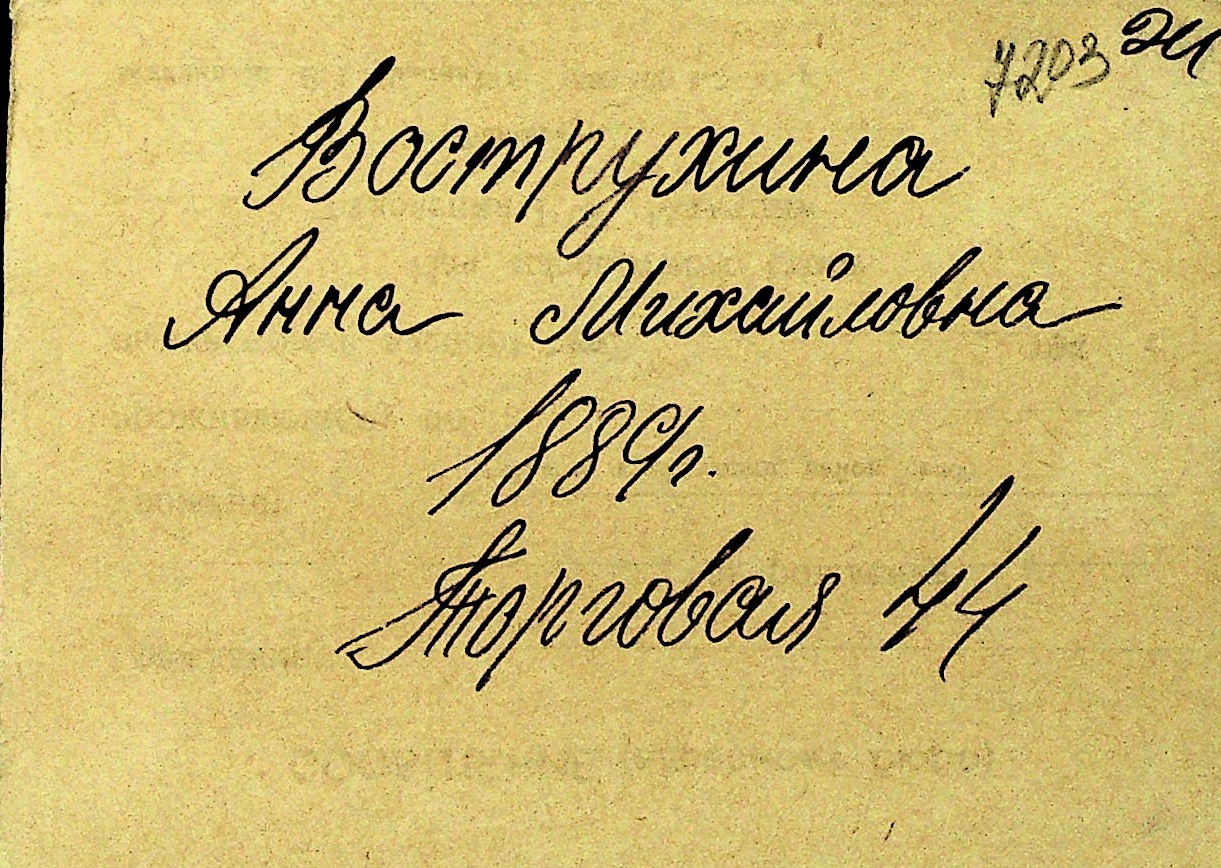 7203 эи
Вострухина
Анна Михайловна
1889г.
Торговая 44